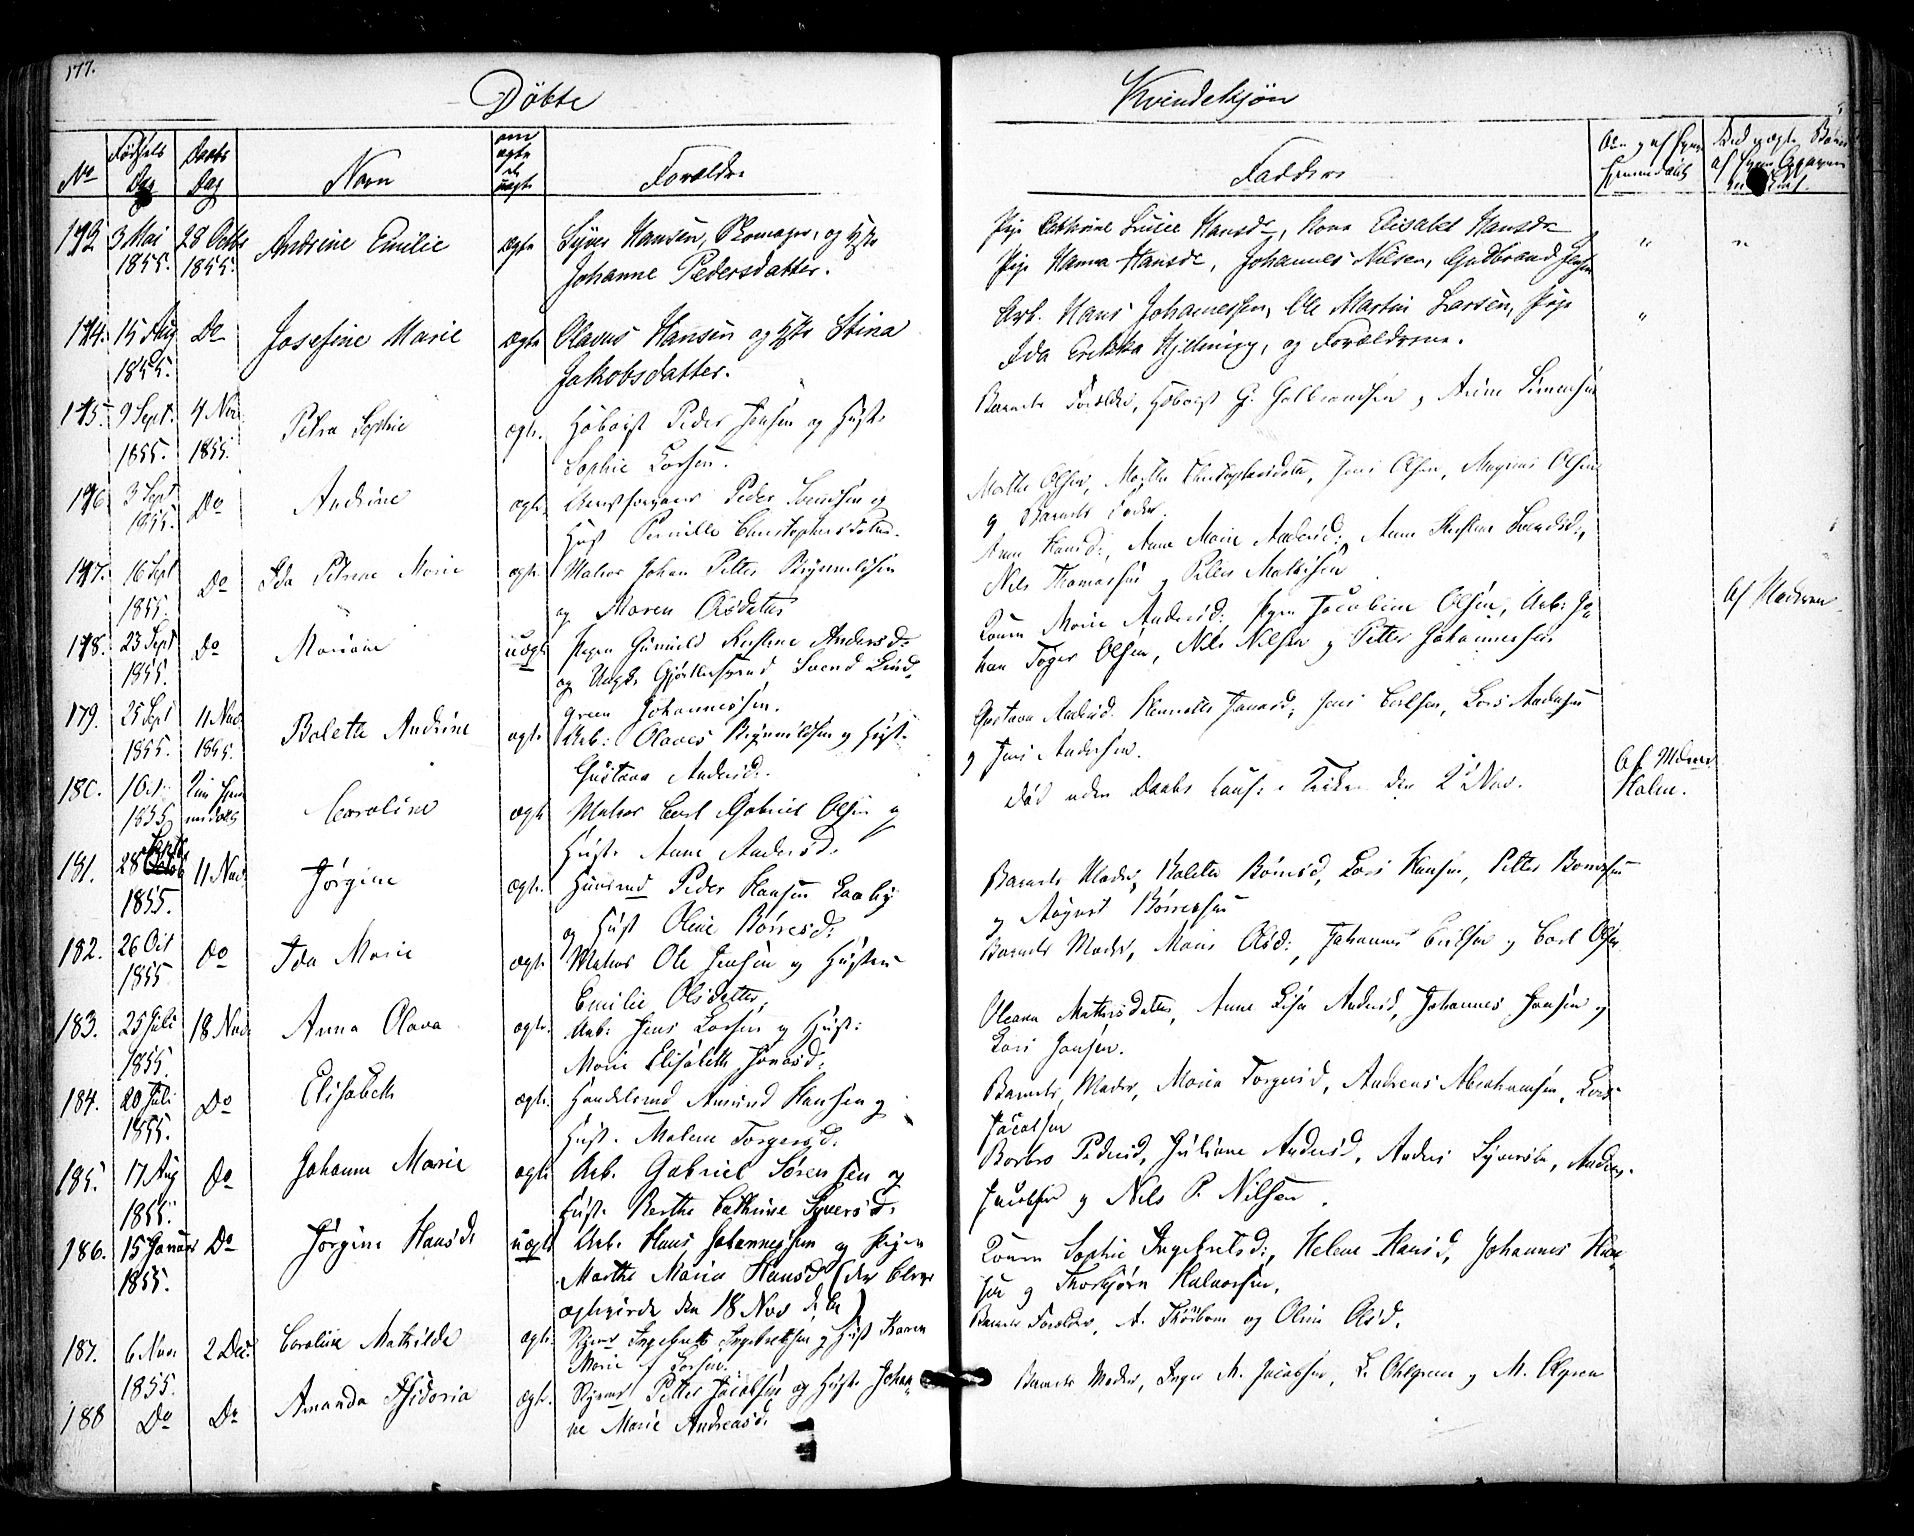 177.
Döbte
Kvindekjön
No
Födsels Dag
Daabs Dag
Navn
om ægte el uægte
Forældre
Faddere
3 Mai 1855. 28 Octbr 1855. Andrine Emilie ægte Syver Hansen, Skomager, og Hstr
Johanne Pedersdatter.
Pige Cathrine Lucie Hansdr, Kone Elisabet Hansdr
Pige Hanna Hansdr, Johannes Nilsen, Gudbrand Jensen
174. 15 Aug 1855. Do Josefine Marie ægte Olavus Hansen og Hstr Stina
Jakobsdatter.
Arb. Hans Johannessen, Ole Martin Larsen, Pige
Ida, og Forældrene.
175. 9 Sept. 1855. 4 Nov. 1855. Petra Sophie ægte. Peder Jensen og Hust.
Sophie Larsen.
Barnets Forældre, G. Gulbrandsen og Anne Simensen
176. 3 Sept 1855. Do Andrine ægte. Peder Svendsen og
Hust Pernille Christophersdatter.
Marthe Olsen, Marthe Christophersdatter, Jens Olsen, Magnus Olsen
og Barnets Fader.
177. 16 Sept 1855. Do Ida Petrine Marie ægte. Matros Johan Petter Brynnildsen
og Maren Olsdatter
Anne Hansd:, Anne Marie Andersd:, Anne Kirstine Svendsd:,
Nils Thomassen og Peder Mathisen
178. 23 Sept 1855. Do Mariane uægte Pigen Gunnild Kirstine Andersd:
og Ungk. Svend Lind-
green Johannessen.
Konen Marie Andersd: Pigen Jacobine Olsen, Arb: Jo-
han Toger Olsen, Nils Nilsen og Petter Johannessen
Af Moderen.
179. 25 Sept 1855. 11 Nov. 1855. Bolette Andrine ægte Arb: Olaves Brynnildsen og Hust.
Gustava Andersd:
Gustava Andersd. Hennette Jansd:, Jens Carlsen, Lars Andersen
og Jens Andersen.
180. 1 Oct 1855 Caroline ægte Matros Carl Gabriel Olsen og
Hust. Anne Andersd:
Död uden Daab den 2 Nov.
Af Mdme
Holm.
181. 28 Septb 1855. 11 Nov. Jörgine ægte. Huusmd Peder Hansen
og Hust Oline Börresd:
Barnets Moder, Bolette Börresd, Lars Hansen, Petter Börresen
og August Börresen
182. 26 Oct 1855. Do Ida Marie ægte. Matros Ole Jensen og Hustru
Emilie Olsdatter.
Barnets Moder, Marie Olsd:, Johannes Carlsen og Carl Olsen
183. 25 Juli 1855. 18 Nov. Anna Olava ægte. Arb: Jens Larsen og Hust:
Marie Elisabeth Jonasd:
Oleana Mathisdatter, Anne Lisa Andersd, Johannes Jansen og
Lars Jansen.
184. 20 Juli 1855. Do Elisabeth ægte. Handelsmd Amund Hansen og
Hust. Malene Torgersd:
Barnets Moder, Maria Torgersd, Andreas Abrahamsen, Lars
Jacobsen
185. 17 Aug 1855. Do Johanne Marie ægte Arb. Gabriel Sörensen og
Hust. Berthe Cathrine Syversd:
Barbro Pedersd, Juliane Andersd, Anders Syversen, Anders
Jacobsen og Nels P. Nilsen.
186. 15 Januar 1855. Do Jörgine Hansd: uægte Arb. Hans Johannessen og Pigen
Marthe Maria Hansd (der bleve
ægteviede den 18 Nov d. A.)
Konen Sophie Ingebretsd:, Helene Hansd, Johannes Han-
sen og Thorbjörn Halvorsen.
187. 6 Nov 1855. 2 Dec. Caroline Mathilde ægte. Ingebret Ingebretsen og Hust Karen
Marie Larsen.
Barnets Forældre, A. Thorbom og Oline Olsd.
188 Do Do Amanda Isidoria ægte. Petter Jacobsen og Hust. Johan-
ne Marie Andreasd.
Barnets Moder, Inger M. Jacobsen, L. Ohlgreen og M. Olgren